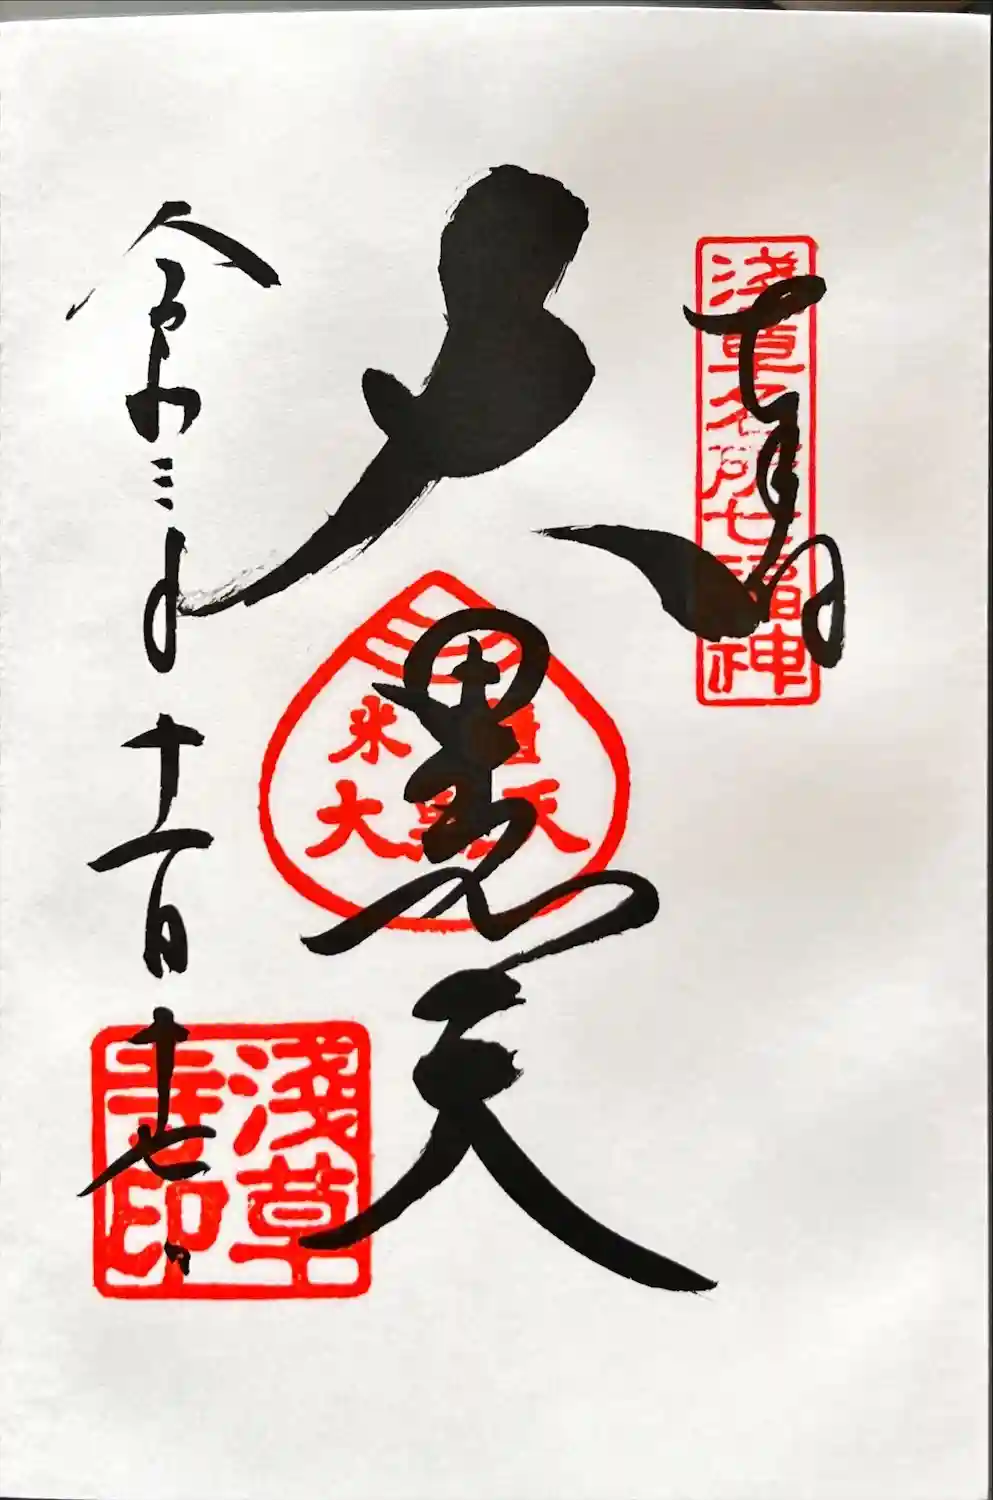 奉拝
淺草名所七福神
大黒天
米櫃
大黒天
令和三年十一月十七日
淺草
寺印